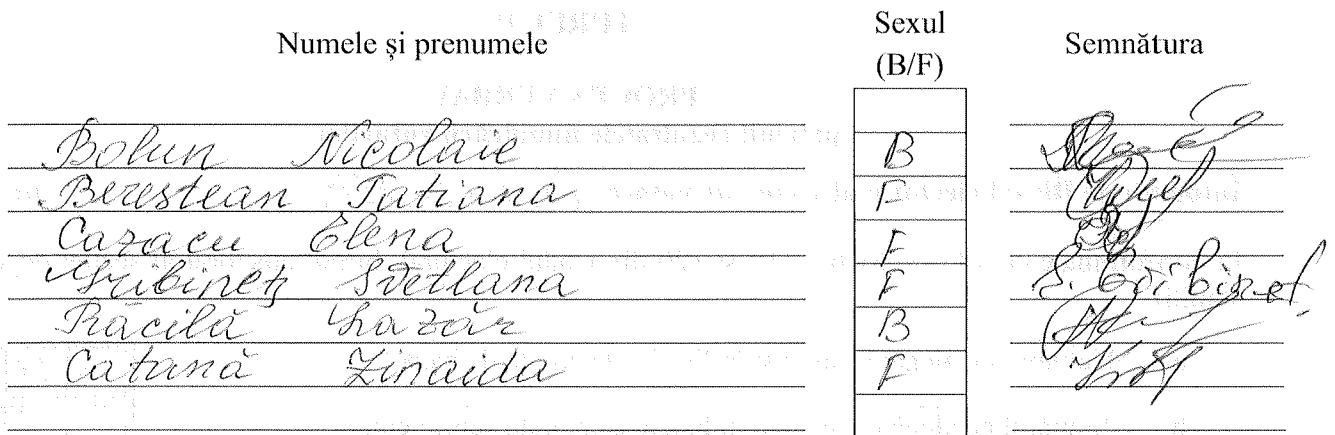 Numele și prenumele Sexul (B/F) Semnătura
Bolun Nicolaie B
Berestean Tatiana F
Cazacu Elena F
Gribineț Svetlana F S. Gribineț
Răcilă Lazăr B
Catană Zinaida F